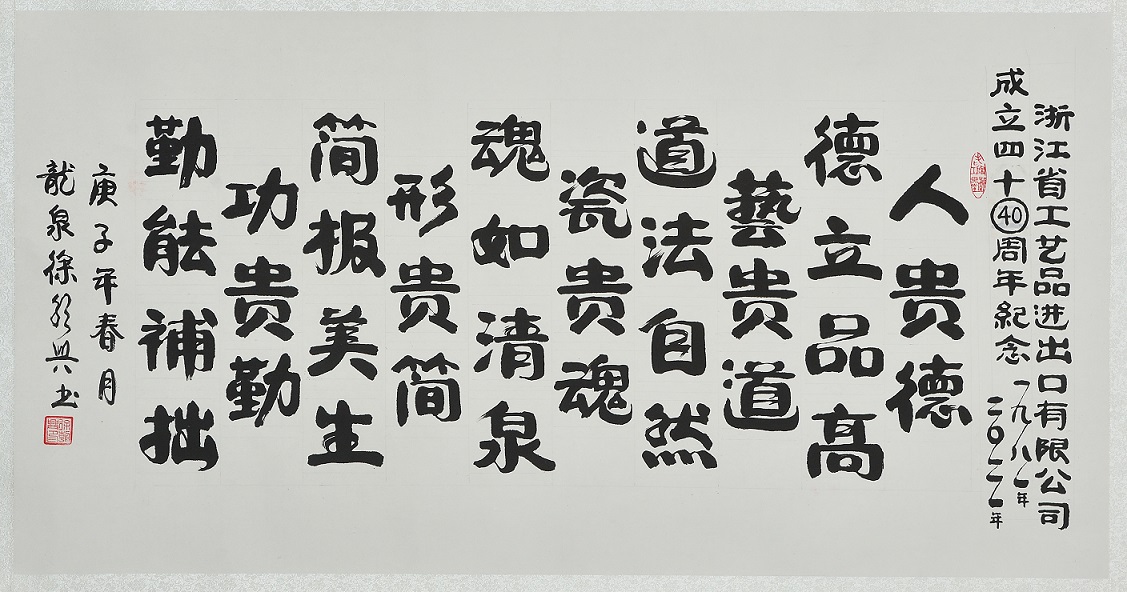 浙江省工艺品进出口有限公司
成立四十㊵周年紀念
一九八二年
二〇二二年
人贵德
德立品高
藝贵道
道法自然
瓷贵魂
魂如清泉
形贵简
简极美生
功贵勤
勤能補拙
庚子年春月
龍泉徐朝兴书